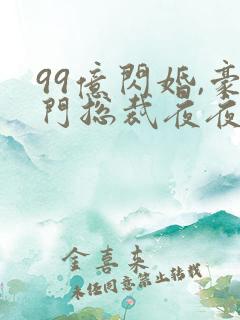 99億閃婚,豪
門總裁夜夜
金喜來
未經同意禁止轉載